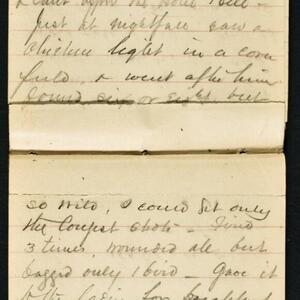 just at nightfall saw a
chicken light in a corn
field, & went after him
found six or eight, but
so wild, I could get only
the longest shots - Fired
3 times, wounded all but
bagged only 1 bird - Gave it
to the ladies for breakfast